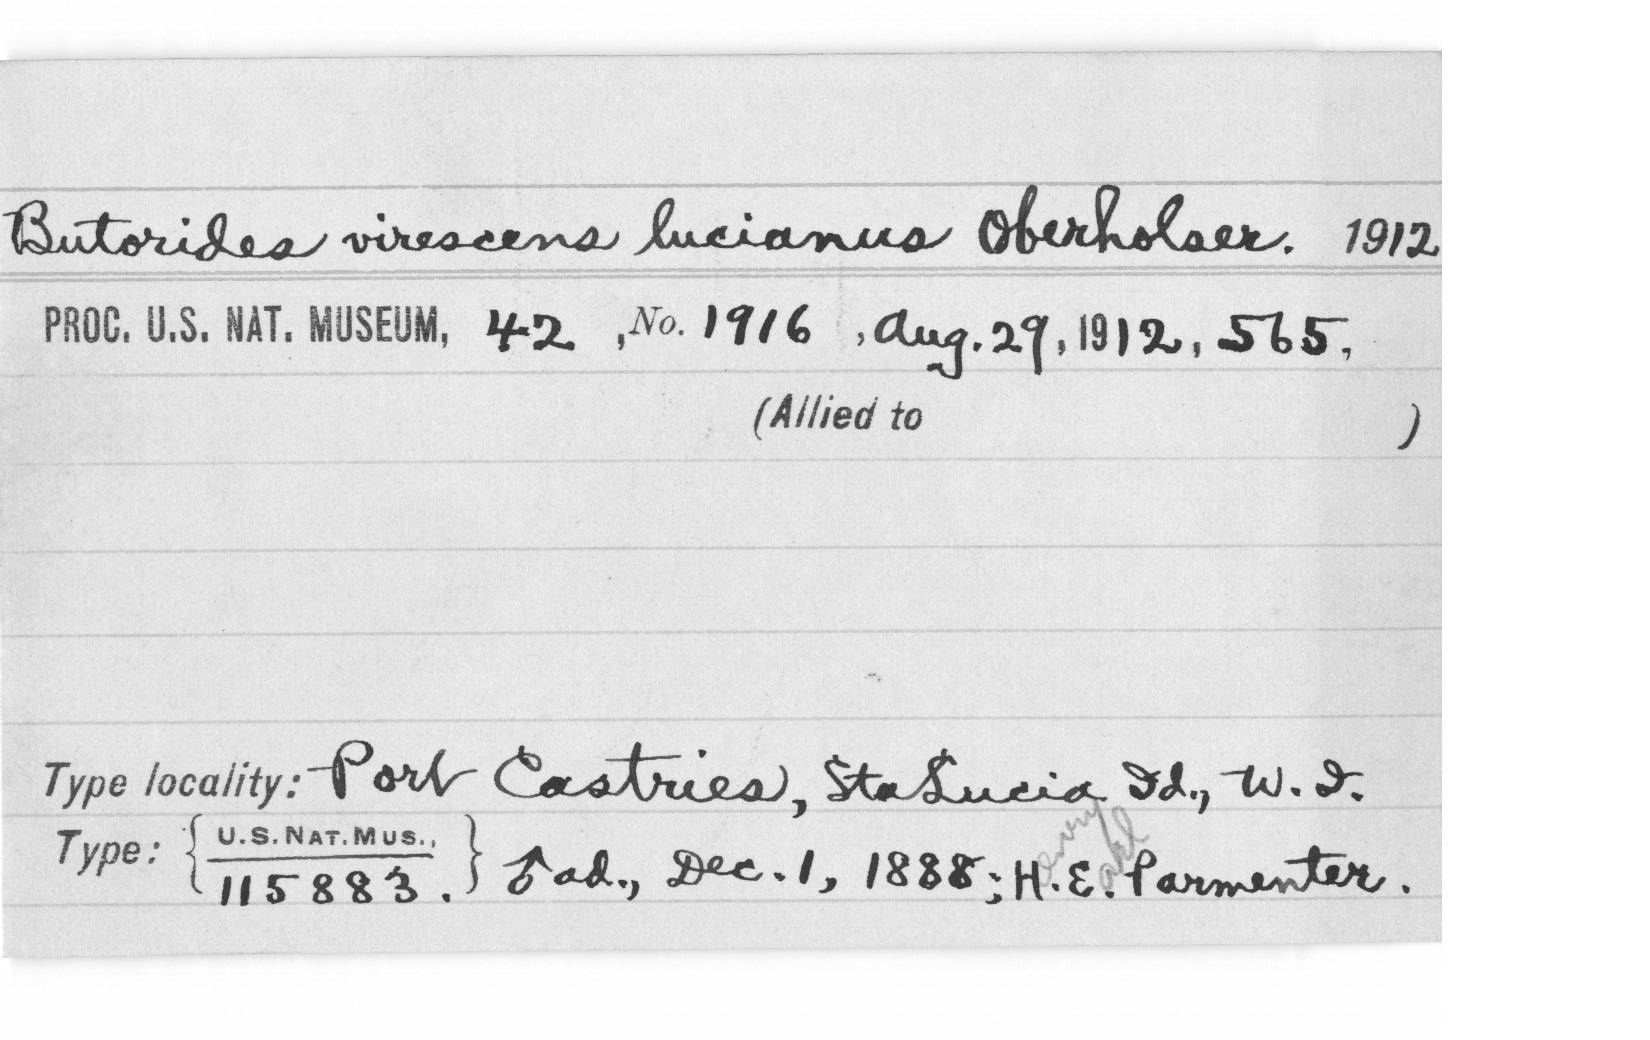 Butorides virescens lucianus Oberholser. 1912
PROC. U.S. NAT. MUSEUM, 42 , No. 1916 , Aug. 29, 1912, 565,
(Allied to )
Type locality: Port Castries, Sta Lucia Id., W. I.
Type: { U.S. NAT. MUS., 115883. } ♂ ad., Dec. 1, 1888; H. E. Parmenter.